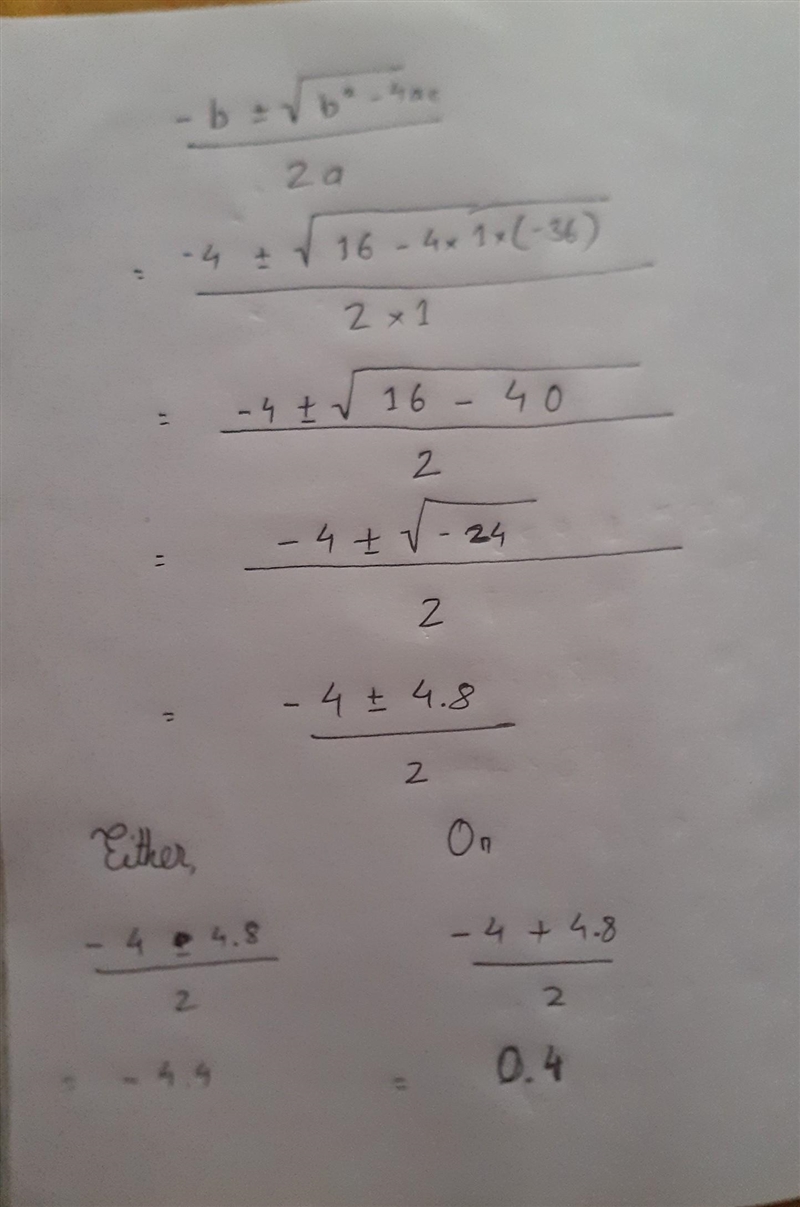 -b ± √b² - 4ac
2a
= -4 ± √16 - 4 × 1 × (-36)
2 × 1
= -4 ± √16 - 40
2
= -4 ± √-24
2
= -4 ± 4.8
2
Either, Or
-4 - 4.8 -4 + 4.8
2 2
= -4.4 = 0.4